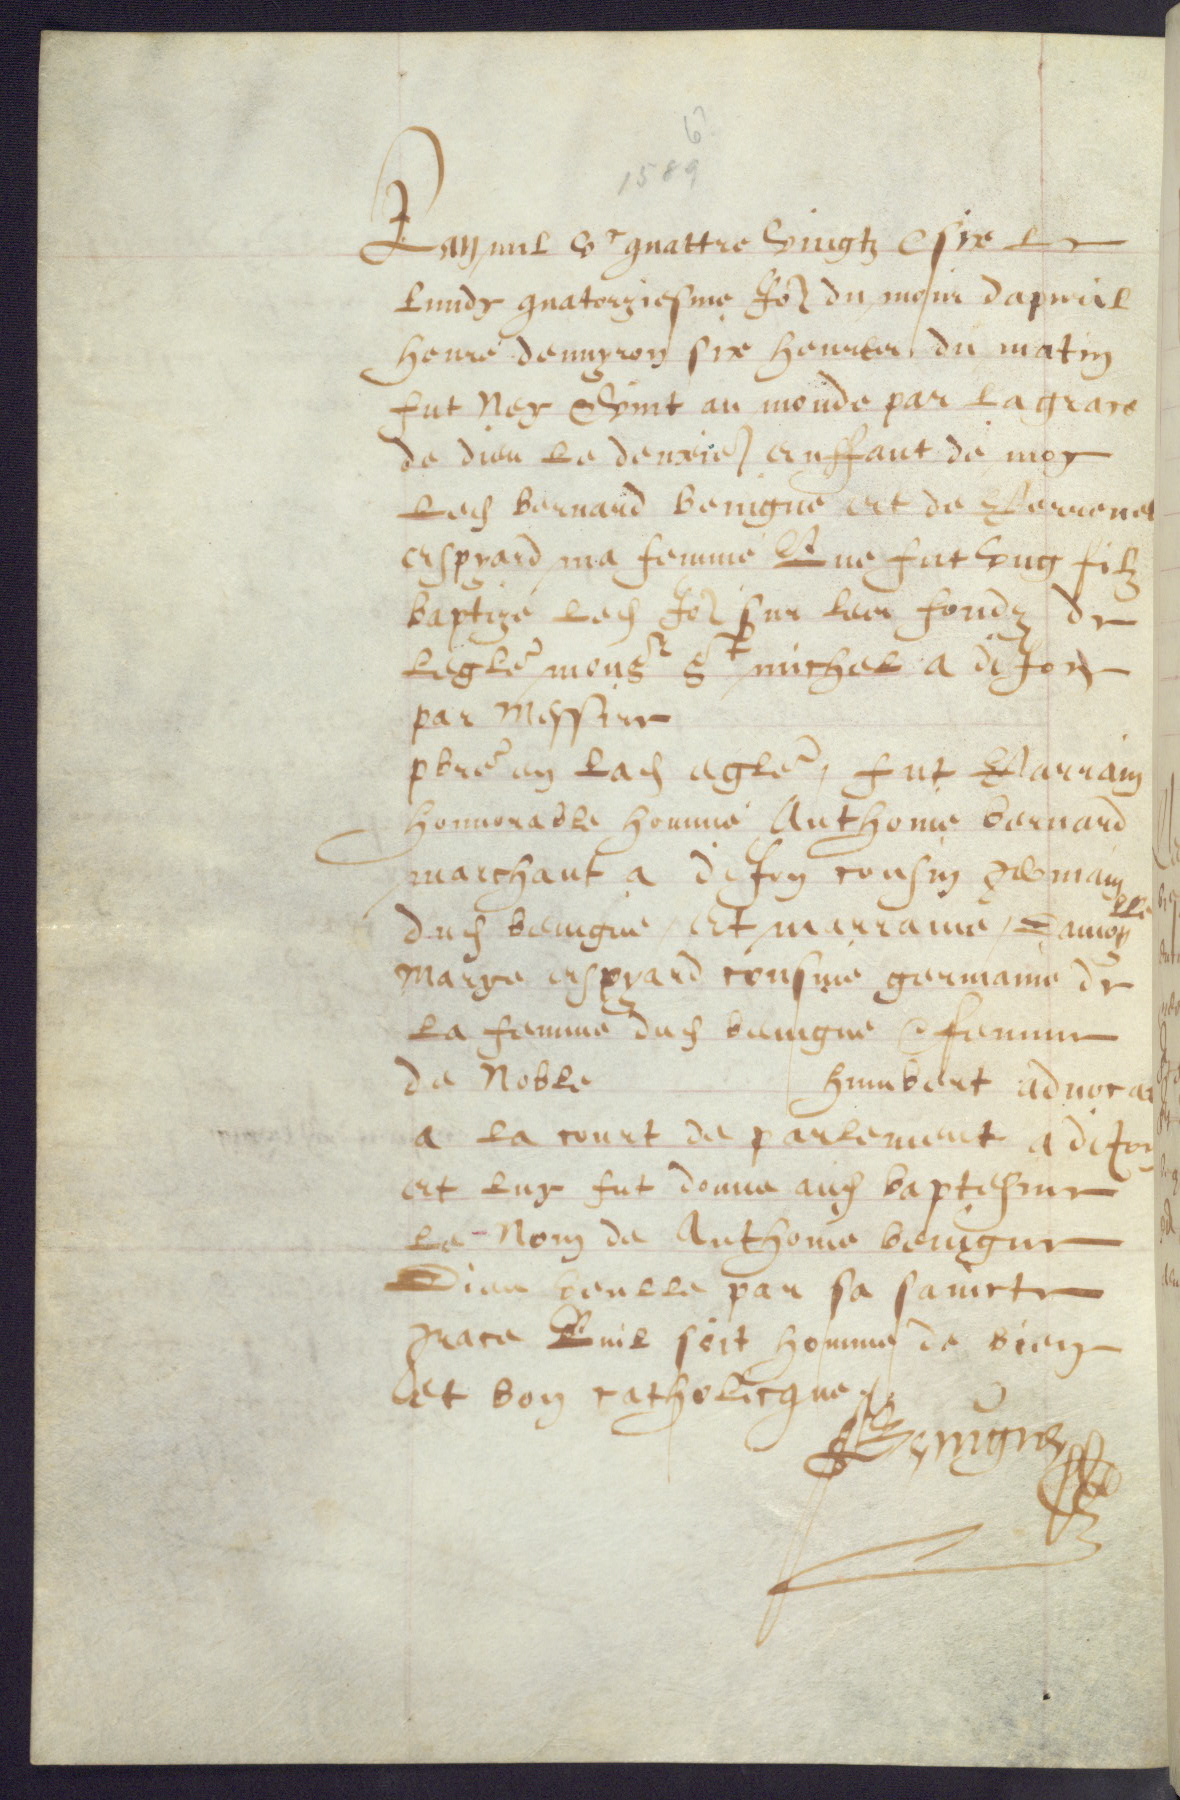 6
1589
Lan mil Vc quattre vingtz & six le
lundy quatorziesme Jor du mois dapvril
heure denvyron six heures du matin
fut Ney & vint au monde par la grace
de dieu le deuxie enffant de moy
led bernard benigne et de Perrenet
espyard ma femme Que fut ung filz
baptizé led Jor sur les fondz de
legle monsr st michel a diJon
par Messire
pbre en lad egle, fut Parrain
honnorable homme Anthonie bernard
marchant a diJon cousin germain
dud benigne et marraine, Damoylle
Marye espyard cousine germaine de
la femme dud benigne & femme
de Noble humbert advocat
a la court de parlement a diJon
et luy fut donne aud baptesme
le Nom de Anthonie benigne
Dieu veulle par sa saincte
grace Quil soit homme de bien
et bon catholicque.
BBenigne